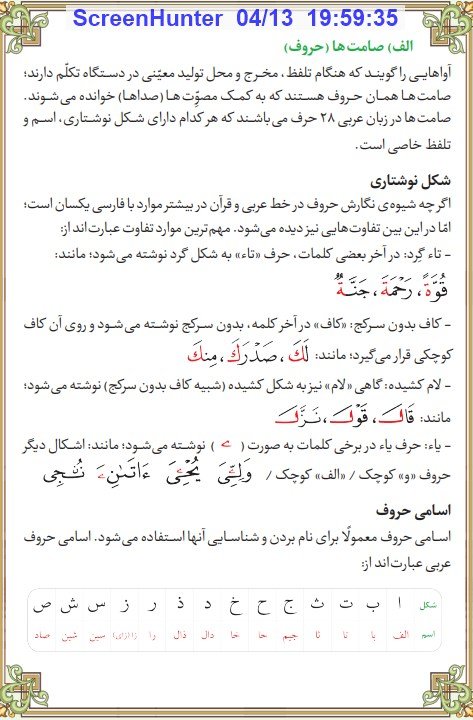 ScreenHunter 04/13 19:59:35
الف) صامت‌ها (حروف)
آواهایی را گویند که هنگام تلفظ، مخرج و محل تولید معیّنی در دستگاه تکلّم دارند؛
صامت‌ها همان حروف هستند که به کمک مصوّت‌ها (صداها) خوانده می‌شوند.
صامت‌ها در زبان عربی ۲۸ حرف می‌باشند که هر کدام دارای شکل نوشتاری، اسم و
تلفظ خاصی است.
شکل نوشتاری
اگر چه شیوه‌ی نگارش حروف در خط عربی و قرآن در بیشتر موارد با فارسی یکسان است؛
امّا در این بین تفاوت‌هایی نیز دیده می‌شود. مهم‌ترین موارد تفاوت عبارت‌اند از:
- تاء گِرد: در آخر بعضی کلمات، حرف «تاء» به شکل گرد نوشته می‌شود؛ مانند:
قُوَّةً، رَحْمَةَ، جَنَّةٌ
- کاف بدون سرکج: «کاف» در آخر کلمه، بدون سرکج نوشته می‌شود و روی آن کاف
کوچکی قرار می‌گیرد؛ مانند: لَكَ، صَدْرَكَ، مِنكَ
- لام کشیده: گاهی «لام» نیز به شکل کشیده (شبیه کاف بدون سرکج) نوشته می‌شود؛
مانند: قَالَ، قَوْلَ، نَزَّلَ
- یاء: حرف یاء در برخی کلمات به صورت (ے) نوشته می‌شود؛ مانند: اشکال دیگر
حروف «و» کوچک / «الف» کوچک / وَلِـِّۧىَ يُحْـِۧىَ ءَاتَىٰنِۦ نُۨجِى
اسامی حروف
اسامی حروف معمولًا برای نام بردن و شناسایی آنها استفاده می‌شود. اسامی حروف
عربی عبارت‌اند از:
شکل ا ب ت ث ج ح خ د ذ ر ز س ش ص
اسم الف با تا ثا جیم حا خا دال ذال را زا (زای) سین شین صاد